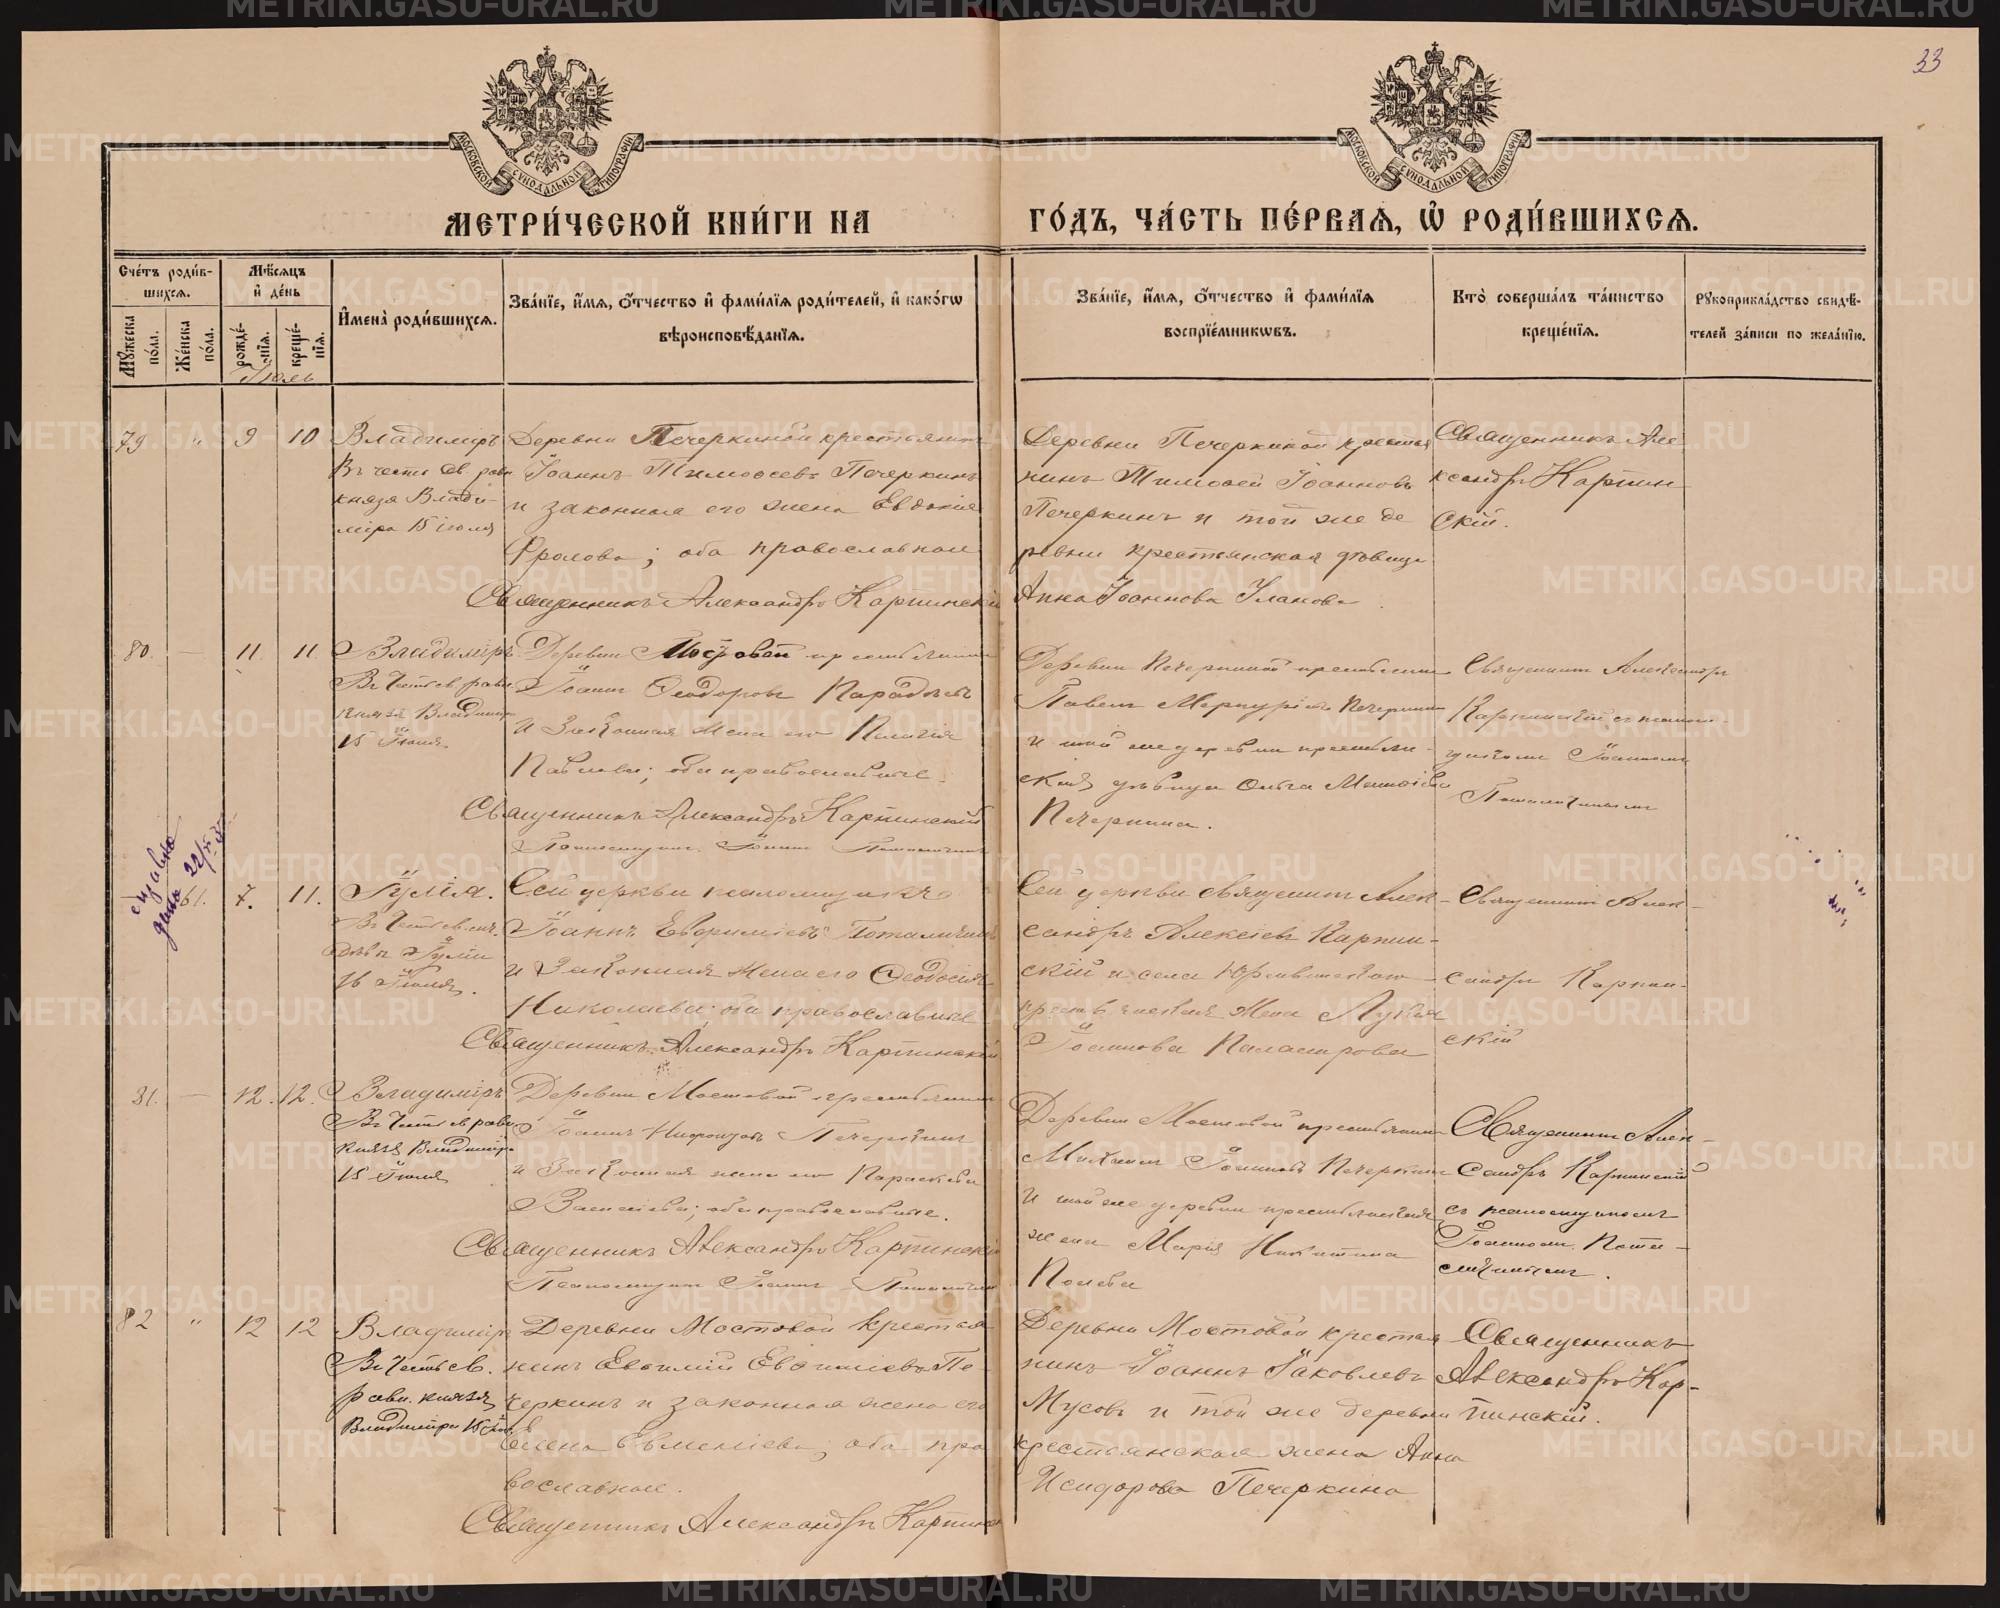 33
МЕТРИ́ЧЕСКОЙ КНИ́ГИ НА ГО́ДЪ, ЧА́СТЬ ПЕ́РВАѦ, Ѡ҆ РОДИ́ВШИХСѦ.
Сче́тъ роди́в-
шихсѧ.
Мꙋжеска по́ла.
Же́нска по́ла.
Мѣ́сѧцъ
и҆ де́нь
рожде́-
нїѧ.
креще́-
нїѧ.
Іюль
И҆мена̀ роди́вшихсѧ.
Зва́нїе, и҆́мѧ, ѻ҆́тчество и҆ фами́лїѧ роди́телей, и҆ како́гѡ
вѣроисповѣ́данїѧ.
Зва́нїе, и҆́мѧ, ѻ҆́тчество и҆ фами́лїѧ
воспрїе́мникѡвъ.
Кто̀ соверша́лъ та́инство
креще́нїѧ.
Рꙋкоприкла́дство свидѣ́-
телей за́писи по жела́нїю.
79 " 9 10
Владиміръ
Въ честь св. равн
князя Влади-
міра 15 іюля
Деревни Печеркиной крестьянинъ
Іоаннъ Тимоѳеевъ Печеркинъ
и законная его жена Евдокія
Фролова; оба православные
Священникъ Александръ Карпинскій
Деревни Печеркиной крестья
нинъ Тимоѳей Іоанновъ
Печеркинъ и той же де
ревни крестьянская дѣвица
Анна Іоаннова Уланова
Священникъ Але
ксандръ Карпин
скій.
80. — 11. 11
Владиміръ
Въ честь св. равн
князя Владимір
15 Іюля.
Деревни Мостовой крестьянинъ
Іоаннъ Ѳеодоровъ Парадѣевъ
и законная жена его Пелагія
Павлова; оба православные.
Священникъ Александръ Карпинскій
Псаломщикъ Іоаннъ
Деревни Печеркиной крестьянинъ
Павелъ Меркурьевъ Печеркинъ
и той же деревни крестьян-
ская дѣвица Ольга
Печеркина.
Священникъ Александръ
Карпинскій съ псалом-
щикомъ Іоанномъ
61. 7. 11.
Іулія.
Въ честь св. муч.
дѣвы Іуліи
16 Іюля.
Сей церкви псаломщикъ
Іоаннъ Евѳиміевъ
и законная жена его Ѳеодосія
Николаева; оба православные
Священникъ Александръ Карпинскій
Сей церкви священникъ Алек-
сандръ Алексіевъ Карпин-
скій и села
жена
Іоаннова
Священникъ Алек-
сандръ Карпин-
скій
81. — 12. 12.
Владиміръ
Въ честь св. равн
князя Владимір
15 Іюля
Деревни Мостовой крестьянинъ
Іоаннъ Печеркинъ
и законная жена его Параскева
Васильева; оба православные.
Священникъ Александръ Карпинскій
Псаломщикъ Іоаннъ
Деревни Мостовой крестьянинъ
Михаилъ Іоанновъ Печеркинъ
и той же деревни крестьянская
жена Марія Никитина
Полева
Священникъ Алек-
сандръ Карпинскій
съ псаломщикомъ
Іоанномъ
82 " 12 12
Владиміръ
Въ честь св.
равн. князя
Владиміра 15 Іюл
Деревни Мостовой крестья
нинъ Евѳимій Евѳиміевъ Пе-
черкинъ и законная жена его
Елена Евменіева; оба пра
вославные.
Священникъ Александръ Карпинск
Деревни Мостовой крестья
нинъ Іоаннъ Іаковлевъ
Мусовъ и той же деревни
крестьянская жена Анна
Исидорова Печеркина
Священникъ
Александръ Кар-
пинскій.